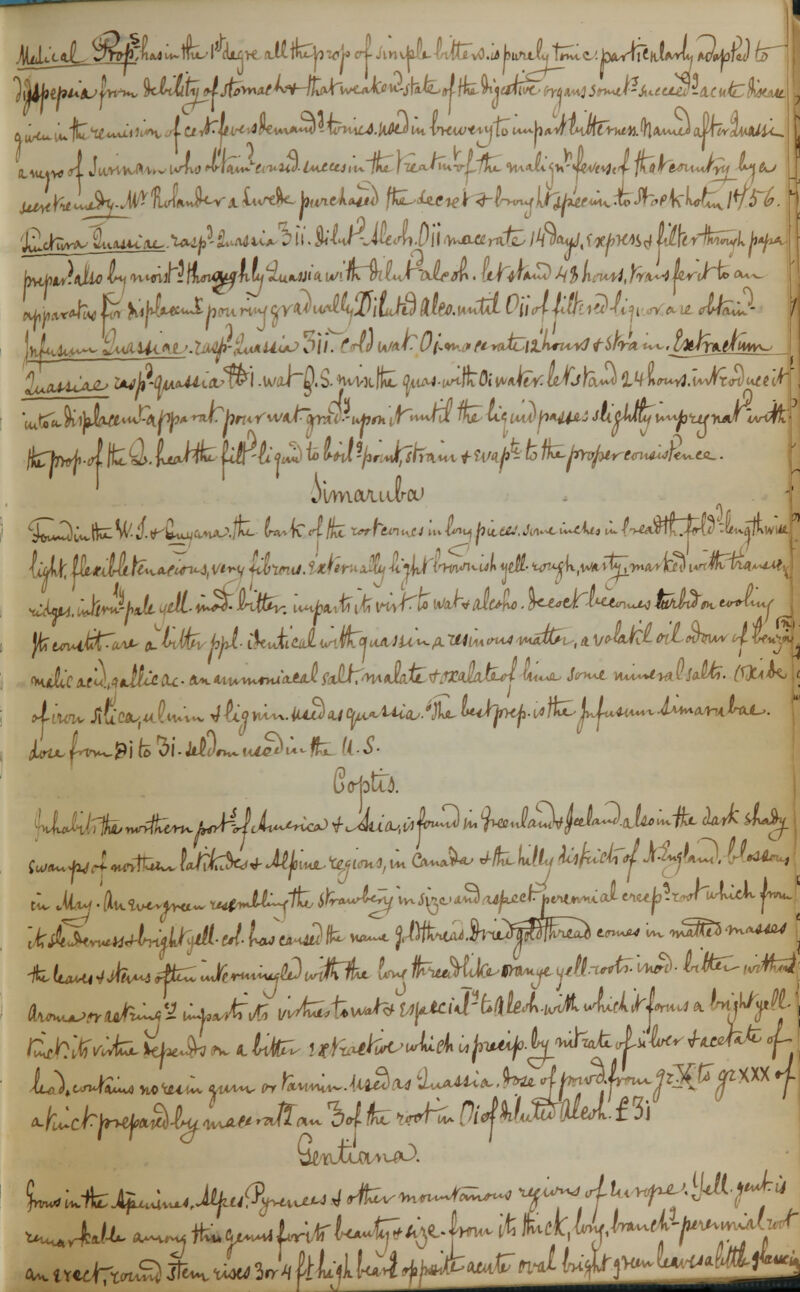 Medical Prop. has in the 1st degre all the prop of simple bitters. is purely tonic: particularly adapted to
dyspepsia from debility of stomach & that weakend state of the digestive organs somets succeeds acute disease
given in the remission of cert. fevers demands tonics. used in brewery to impart bitterness. Named after Quassi
a negro of Surinam who obtain consid. success in the treatmt of the malign fevers of that country by a
secret remedy. Mr Rolander a Swede purchased the secret & brought specim. to Stockholm 1756.
Tinctura Quassiae. rasp. Quassia ℥ii. dilut. Alcoh. Oii macerate 14 days, express & filter through paper
prepar. also by moist. thoroughly Quassia with dilut. alcoh. let stand 48 hours, transfer it to an
apparatus for displacemt pouring gradually Diluted Alco. until Oii of filtered liquor are obtain.
Infusum Quassiae. rasp. Quassia ʒii. Cold wat. Oi. macerate 12 hours & strain. Extractum
Quassiae rasp. quassia ℔i. wat. Q.S. mix the quas. with Oi water. let stand 24 hours. introduce it
into a displacemt apparat. pour wat. grad. upon it until the liquid passes slightly impregnat. with
the prop. of the Q. heat the filt. liquid to boil. point, strain & evap. to the proper consistence.
Simaruba
Found in the W. I. & Guyana. the bark of the root comes in long pieces. some inches in breadth. fold. lengthwise
light, flexible tenaceous, very fibrous. externally light brownish yell. rough, warty, marked with transverse
ridges. intern. pale yell. inod. bitter. imparts its virt. to wat & alcoho. decoct becomes turbid on cooling
Its constit. are a bitter ppl. identical with quassin, a resinous matter, a volatil oil odour of benzoin
malic acid, gallic ac. an ammoniacal salt, malate & oxalate of lime some mineral salts. Oxide
of iron silica, ulmin & lignin. used as quassia. The best prep. is the Infusum Simarubae.
dose from ℈i to ʒi. seldom used in the U.S.
Coptis.
Inhabits the northern parts of America & Asia, is found in Greenland & Iceland. also in the dark shady
swamps of northern latitudes & Alpine regions, in Canada & the hilly districts of N. England. blossoms
in May. An evergreen resembling the strawbery in size and aspect perennial creep. root which from
its slenderness & bright yell. col. has caused the name Goldthread. Dried goldthread comes in matted masses
the leaves & stems often intermingled with the long threadlike orange yell. roots. inod. bitter without
aroma or astring. imparts its virtues to wat & especial. to Alcoh. with which it forms a bright yell.
tinct. its virtue depends on a bitter extractive which is precip. by nitrate of silver & acetate of
lead, contains no resin gum or tannin. Used as Quassia. Dose of powd. from gr. X to gr XXX of
a tinct. prepared by macerati an ℥ of the root in Oi of diluted Alcoh. f ʒi
Gentiana.
Grows in the Apenines, Alpes, Pyrenees & other mountainous regions of Europe. Yell. gent. is
remarkable among this genus for its beauty & size. from its thick, long, branch. perennial root
an erect, round stem rises 3 or 4 ft high bears opposite acute oval bright green leaves a little glaucus